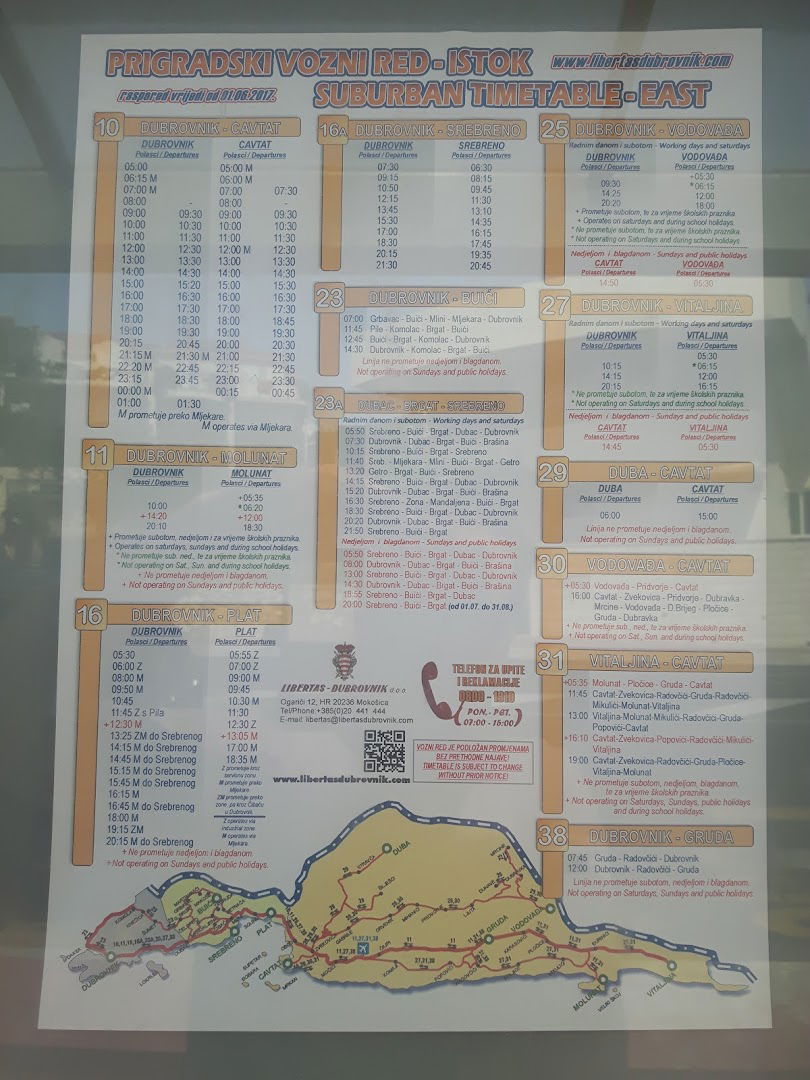 PRIGRADSKI VOZNI RED - ISTOK
www.libertasdubrovnik.com
raspored vrijedi od 01.06.2017.
SUBURBAN TIMETABLE - EAST
10 DUBROVNIK - CAVTAT
DUBROVNIK CAVTAT
Polasci / Departures Polasci / Departures
05:00 05:00 M
06:15 M 06:00 M
07:00 M 07:00 07:30
08:00 - 08:00 -
09:00 09:30 09:00 09:30
10:00 10:30 10:00 10:30
11:00 11:30 11:00 11:30
12:00 12:30 12:00 M 12:30
13:00 13:30 13:00 13:30
14:00 14:30 14:00 14:30
15:00 15:20 15:00 15:30
16:00 16:30 16:00 16:30
17:00 17:30 17:00 17:30
18:00 18:30 18:00 18:45
19:00 19:30 19:00 19:30
20:15 20:45 20:00 20:30
21:15 M 21:30 M 21:00 21:30
22.20 M 22:45 22:15 22:45
23:15 23:45 23:00 23:30
00:00 M 00:15 00:45
01:00 01:30
M prometuje preko Mljekare.
M operates via Mljekara.
11 DUBROVNIK - MOLUNAT
DUBROVNIK MOLUNAT
Polasci / Departures Polasci / Departures
+05:35
10:00 *06:20
+14:20 +12:00
20:10 18:30
+ Prometuje subotom, nedjeljom i za vrijeme školskih praznika.
+ Operates on saturdays, sundays and during school holidays.
* Ne prometuje sub. ned., te za vrijeme školskih praznika.
* Not operating on Sat., Sun. and during school holidays.
+ Ne prometuje nedjeljom i blagdanom.
+ Not operating on Sundays and public holidays.
16 DUBROVNIK - PLAT
DUBROVNIK PLAT
Polasci / Departures Polasci / Departures
05:30 05:55 Z
06:00 Z 07:00 Z
08:00 M 09:00 M
09:50 M 09:45
10:45 10:30 M
11:45 Z s Pila 11:30
+12:30 M 12:30 Z
13:25 ZM do Srebrenog +13:05 M
14:15 M do Srebrenog 17:00 M
14:45 M do Srebrenog 18:35 M
15.15 M do Srebrenog
15:45 M do Srebrenog
16:15 M
16:45 M do Srebrenog
18:00 M
19.15 ZM
20:15 M do Srebrenog
Z prometuje kroz
servisnu zonu.
M prometuje preko
Mljekare.
ZM prometuje preko
zone, pa kroz Čibaču
u Dubrovnik.
Z operates via
industrial zone.
M operates via
Mljekare.
+ Ne prometuje nedjeljom i blagdanom.
+Not operating on Sundays and public holidays.
16A DUBROVNIK - SREBRENO
DUBROVNIK SREBRENO
Polasci / Departures Polasci / Departures
07:30 06:30
09:15 08:15
10:50 09:45
12:15 11:30
13:45 13:10
15:30 14:35
17:00 16:15
18:30 17:45
20:15 19:35
21:30 20:45
23 DUBROVNIK - BUIĆI
07:00 Grbavac - Buići - Mlini - Mljekara - Dubrovnik
11:45 Pile - Komolac - Brgat - Buići
12:45 Buići - Brgat - Komolac - Dubrovnik
14:30 Dubrovnik - Komolac - Brgat - Buići
Linija ne prometuje nedjeljom i blagdanom.
Not operating on Sundays and public holidays.
23A DUBAC - BRGAT - SREBRENO
Radnim danom i subotom - Working days and saturdays
05:50 Srebreno - Buići - Brgat - Dubac - Dubrovnik
07:30 Dubrovnik - Dubac - Brgat - Buići - Brašina
10:15 Srebreno - Buići - Brgat - Srebreno
11:40 Sreb. - Mljekara - Mlini - Buići - Brgat - Getro
13:20 Getro - Brgat - Buići - Srebreno
14:15 Srebreno - Buići - Brgat - Dubac - Dubrovnik
15:20 Dubrovnik - Dubac - Brgat - Buići - Brašina
16:30 Srebreno - Zona - Mandaljena - Buići - Brgat
18:30 Srebreno - Buići - Brgat - Dubac - Dubrovnik
20:20 Dubrovnik - Dubac - Brgat - Buići - Brašina
21:50 Srebreno - Buići - Brgat
Nedjeljom i blagdanom - Sundays and public holidays
05:50 Srebreno - Buići - Brgat - Dubac - Dubrovnik
08:00 Dubrovnik - Dubac - Brgat - Buići - Brašina
13:00 Srebreno - Buići - Brgat - Dubac - Dubrovnik
14:30 Dubrovnik - Dubac - Brgat - Buići - Brašina
18:55 Srebreno - Buići - Brgat - Dubac
20:00 Srebreno - Buići - Brgat (od 01.07. do 31.08.)
LIBERTAS - DUBROVNIK d.o.o.
Ogarići 12, HR 20236 Mokošica
Tel/Phone:+385(0)20 441 444
E-mail: libertas@libertasdubrovnik.com
www.libertasdubrovnik.com
TELEFON ZA UPITE
I REKLAMACIJE
0800 - 1910
(PON.- PET.
07:00 - 15:00)
VOZNI RED JE PODLOŽAN PROMJENAMA
BEZ PRETHODNE NAJAVE!
TIMETABLE IS SUBJECT TO CHANGE
WITHOUT PRIOR NOTICE!
25 DUBROVNIK - VODOVAĐA
Radnim danom i subotom - Working days and saturdays
DUBROVNIK VODOVAĐA
Polasci / Departures Polasci / Departures
+05:30
09:30 *06:15
14:25 12:00
20:20 18:00
+ Prometuje subotom, te za vrijeme školskih praznika
+ Operates on Saturdays and during school holidays.
* Ne prometuje subotom, te za vrijeme školskih praznika.
* Not operating on Saturdays and during school holidays.
Nedjeljom i blagdanom - Sundays and public holidays
CAVTAT VODOVAĐA
Polasci / Departures Polasci / Departures
14:50 05:30
27 DUBROVNIK - VITALJINA
Radnim danom i subotom - Working days and saturdays
DUBROVNIK VITALJINA
Polasci / Departures Polasci / Departures
05:30
10:15 *06:15
14:15 12:00
20:15 16:15
* Ne prometuje subotom, te za vrijeme školskih praznika.
* Not operating on Saturdays and during school holidays.
Nedjeljom i blagdanom - Sundays and public holidays
CAVTAT VITALJINA
Polasci / Departures Polasci / Departures
14:45 05:30
29 DUBA - CAVTAT
DUBA CAVTAT
Polasci / Departures Polasci / Departures
06:00 15:00
Linija ne prometuje nedjeljom i blagdanom.
Not operating on Sundays and public holidays.
30 VODOVAĐA - CAVTAT
+05:30 Vodovađa - Pridvorje - Cavtat
16:00 Cavtat - Zvekovica - Pridvorje - Dubravka -
Mrcine - Vodovađa - D.Brijeg - Pločice -
Gruda - Dubravka
+ Ne prometuje sub., ned., te za vrijeme školskih praznika.
+ Not operating on Sat., Sun. and during school holidays.
31 VITALJINA - CAVTAT
+05:35 Molunat - Pločice - Gruda - Cavtat
11:45 Cavtat-Zvekovica-Radovčići-Gruda-Radovčići-
Mikulići-Molunat-Vitaljina
13:00 Vitaljina-Molunat-Mikulići-Radovčići-Gruda-
Popovići-Cavtat
+16:10 Cavtat-Zvekovica-Popovići-Radovčići-Mikulići-
Vitaljina
19:00 Cavtat-Zvekovica-Radovčići-Gruda-Pločice-
Vitaljina-Molunat
+ Ne prometuje subotom, nedjeljom, blagdanom,
te za vrijeme školskih praznika.
+ Not operating on Saturdays, Sundays, public holidays
and during school holidays.
38 DUBROVNIK - GRUDA
07:45 Gruda - Radovčići - Dubrovnik
12:00 Dubrovnik - Radovčići - Gruda
Linija ne prometuje subotom, nedjeljom i blagdanom.
Not operating on Saturdays, Sundays and public holidays.
DUBA
DUBROVNIK
SREBRENO
PLAT
CAVTAT
GRUDA
VODOVAĐA
MOLUNAT
VITALJINA
11,27,31,38